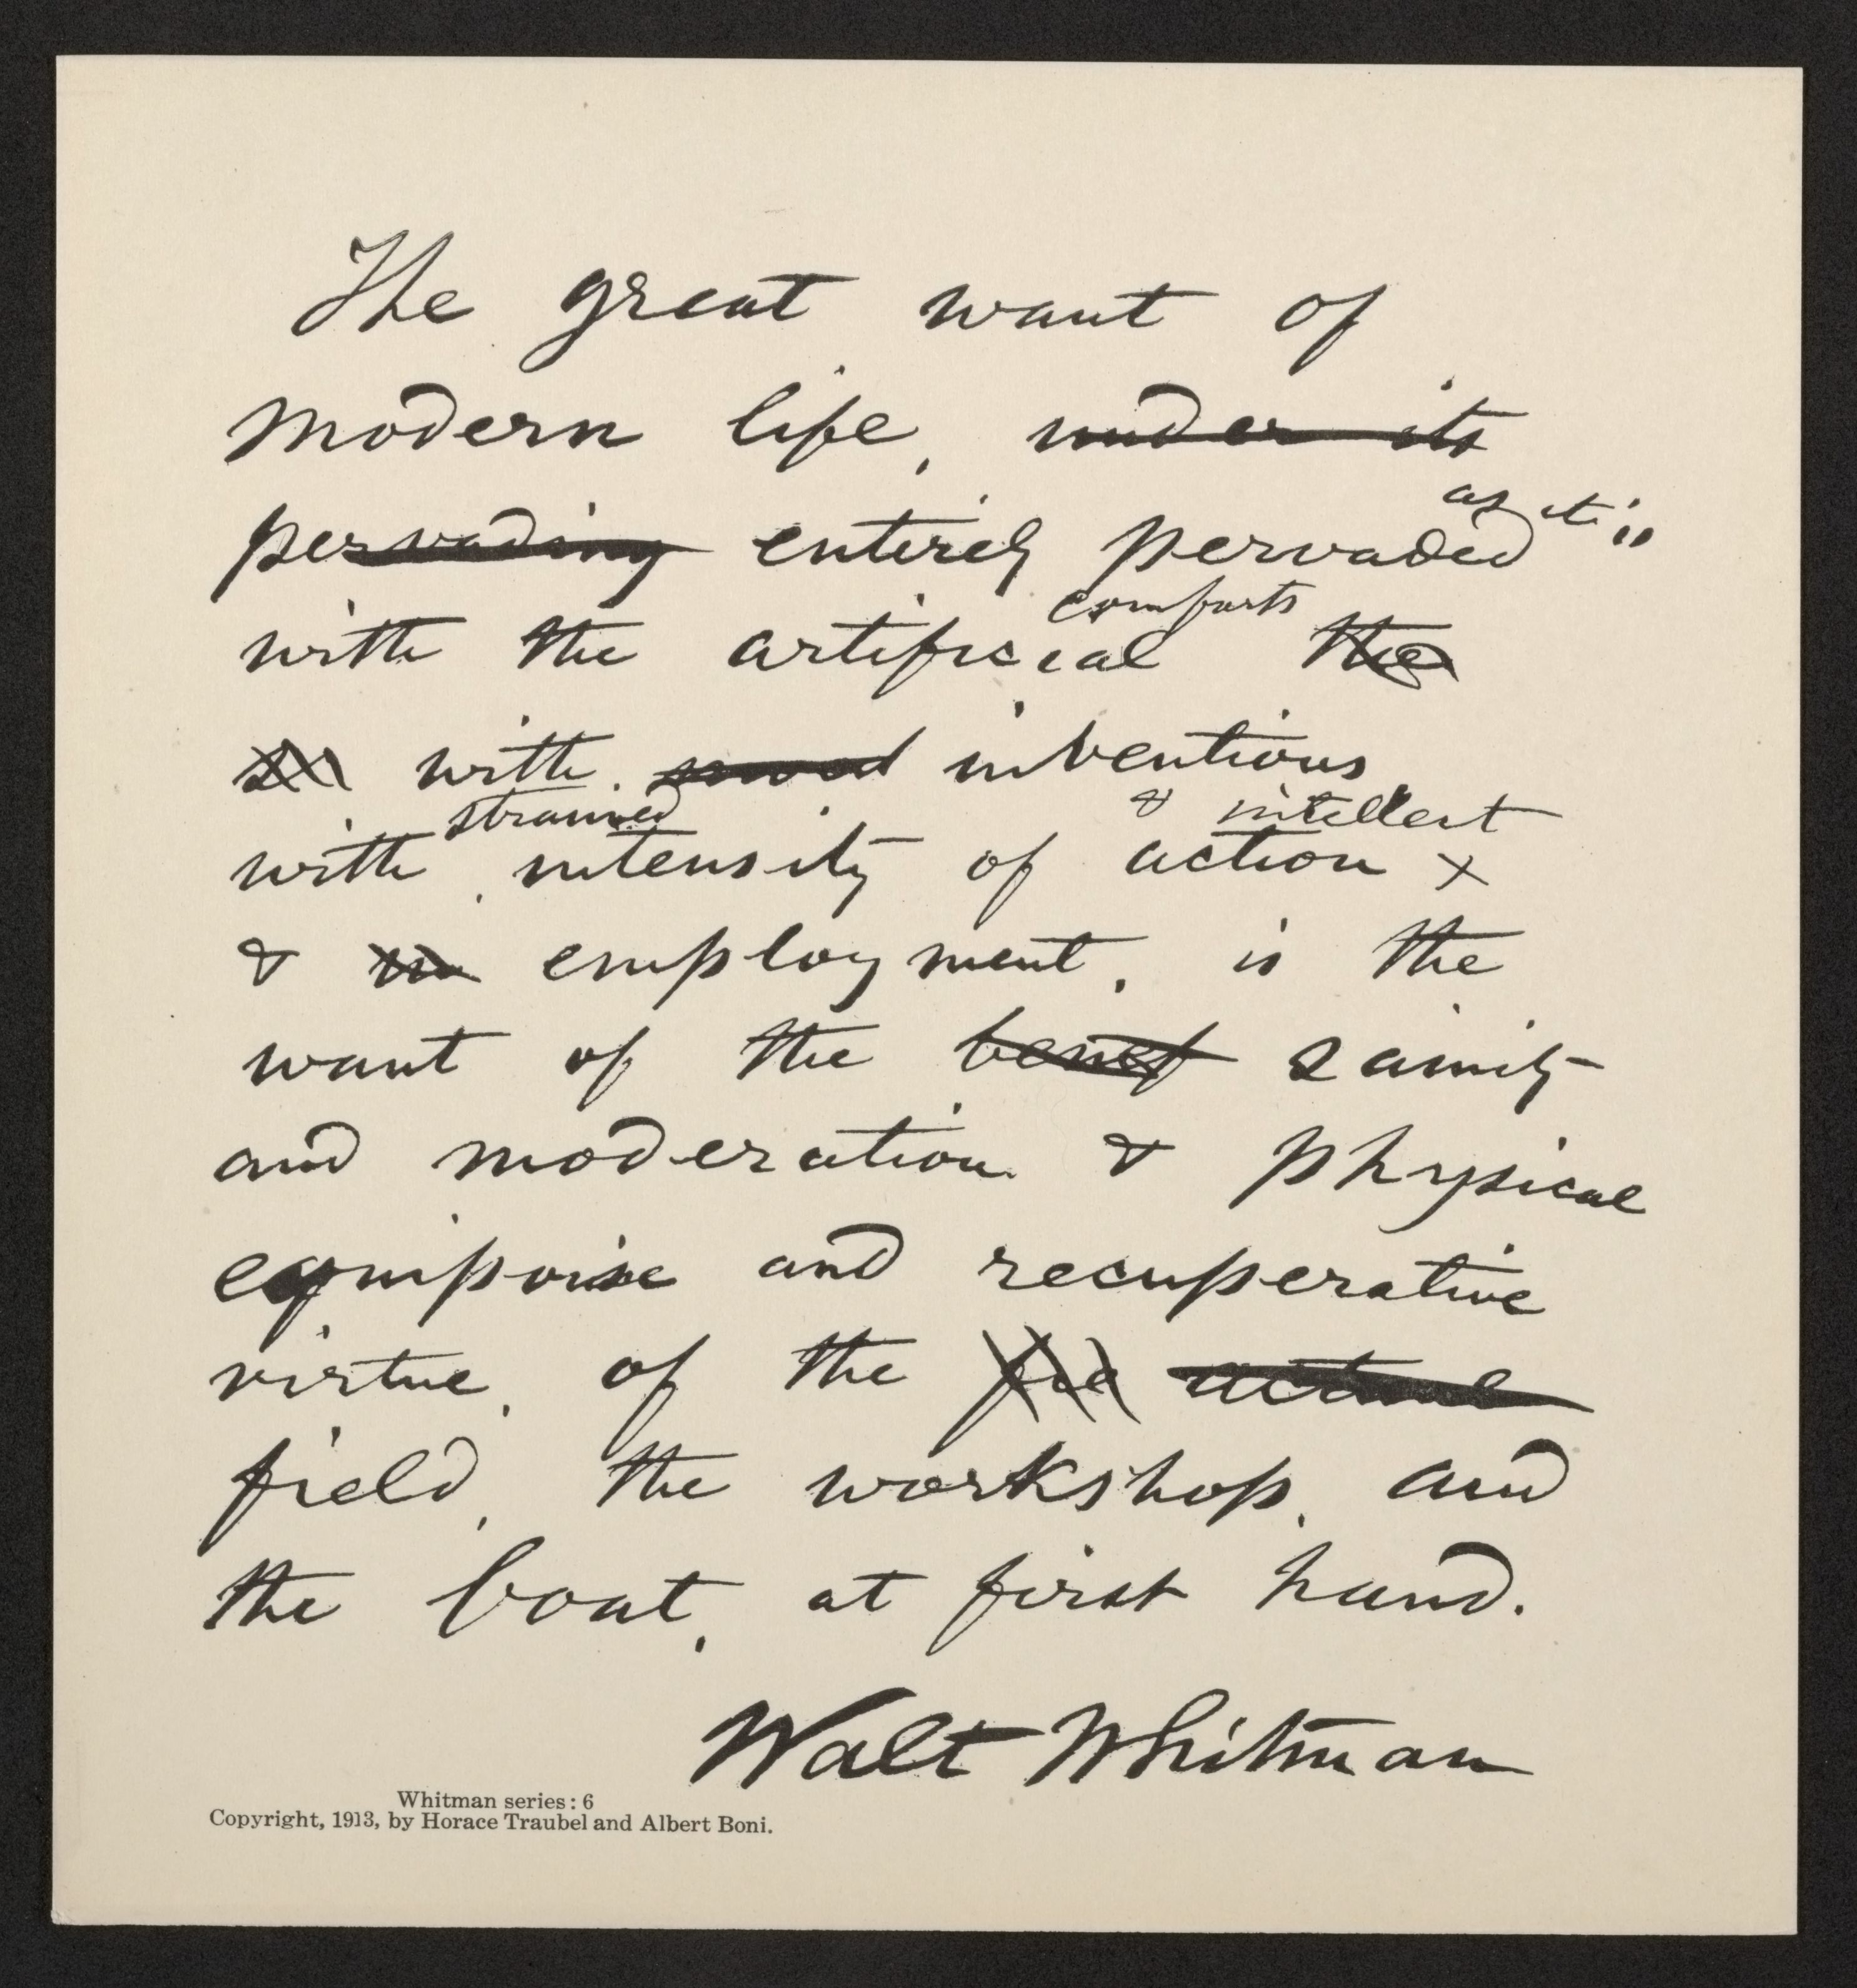 The great want of
modern life, under its
pervading entirely pervaded
as it is
with the artificial the
comforts
with inventions,
with intensity of action
strained & intellect
& employment, is the
want of the sanity
and moderation & physical
equipoise and recuperative
virtue, of the actual
field, the workshop, and
the boat, at first hand.
Walt Whitman
Whitman series: 6
Copyright, 1913, by Horace Traubel and Albert Boni.